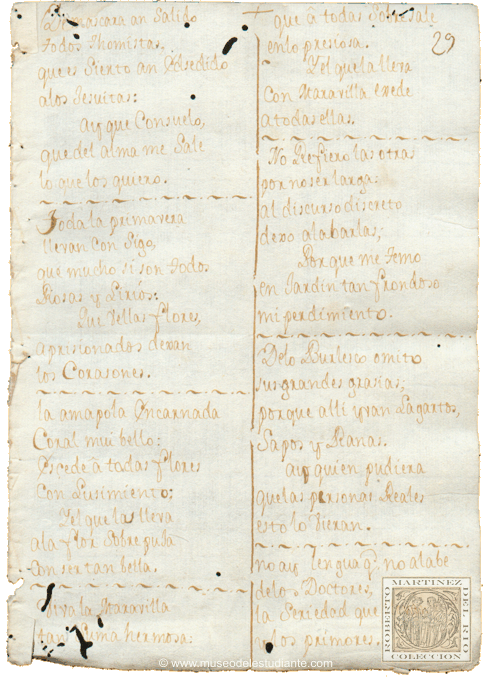 De mascara an Salido
todos thomistas.
que es Sierto an Esedido
alos Jesuitas:
ay que Consuelo,
que del alma me Sale
lo que los quiero.
Toda la primavera
llevan Con Sigo,
que mucho si son todos
Rosas y Lirios:
Que Vellas flores,
aprisionados dexan
los Corazones.
la amapola Encarnada
Coral mui bello:
Escede â todas flores
Con Lusimiento:
Y el que las lleva
ala flor Sobre puja
Con ser tan bella.
Viva la Maravilla
tan Suma hermosa:
que â todas Sobre sale
en lo presiosa.
Y el que la lleva
Con Maravilla exede
a todas ellas.
No Refiero las otras
por no ser larga:
al discurso discreto
dexo alabarlas;
Porque me temo
en Jardin tan frondoso
mi perdimiento.
Delo Burlesco omito
sus grandes grasias;
porque alli yvan Lagartos,
Sapos y Ranas.
ay quien pudiera
que las personas Reales
esto lo Vieran.
no ay lengua q̃ no alabe
delos Doctores,
la Seriedad que
los primores.
29
ROBERTO MARTINEZ DEL RIO
COLECCION
© www.museodelestudiante.com